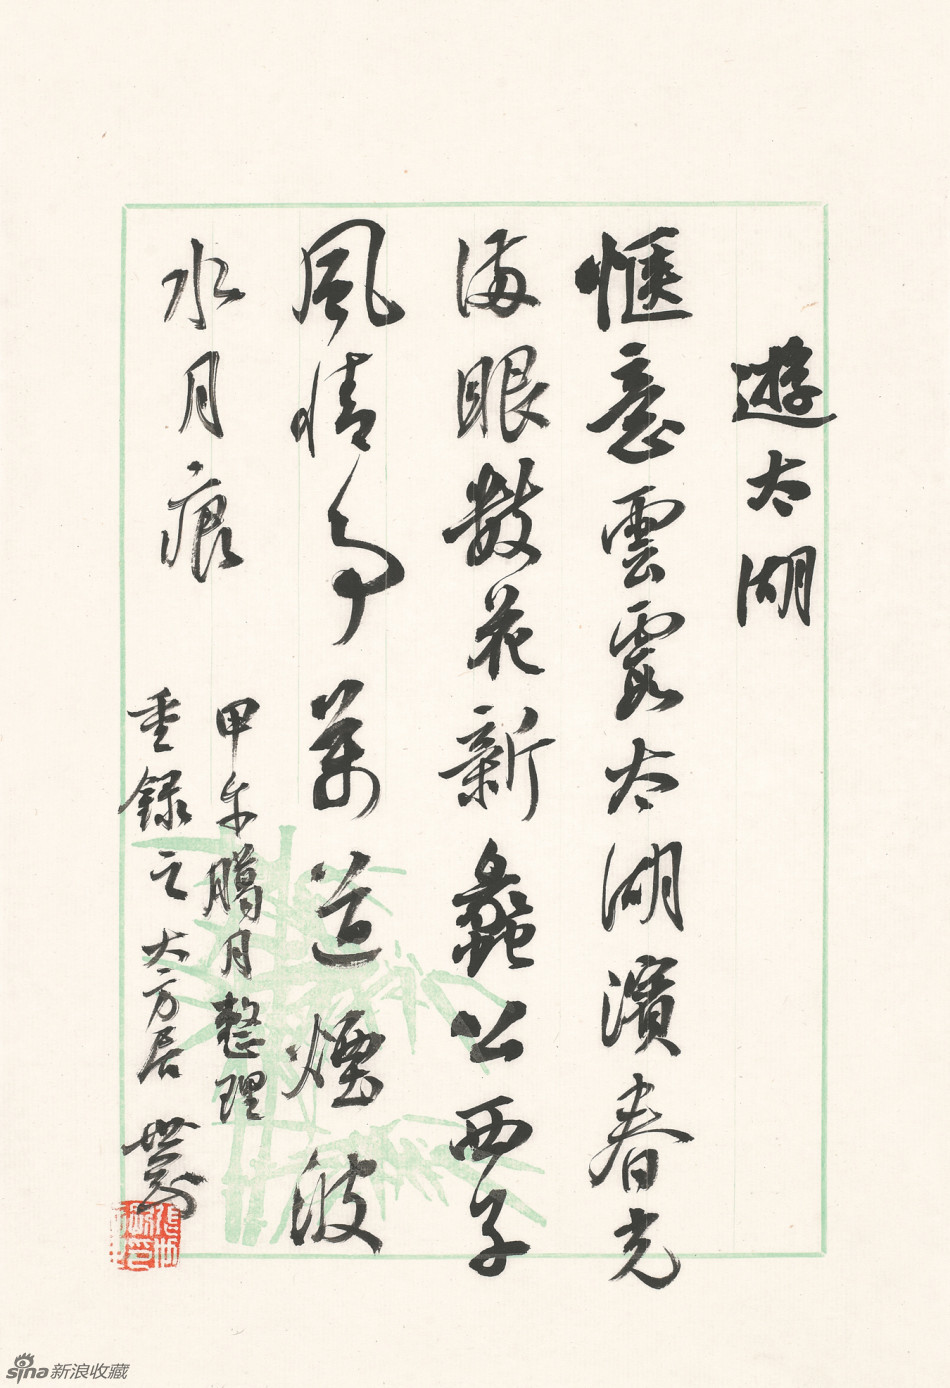 遊太湖
惬意雲霞太湖濱春光
满眼數花新蠡公西子
風情事萬道煙波
水月痕
甲午腾月整理
重録之大方居
sina新浪收藏